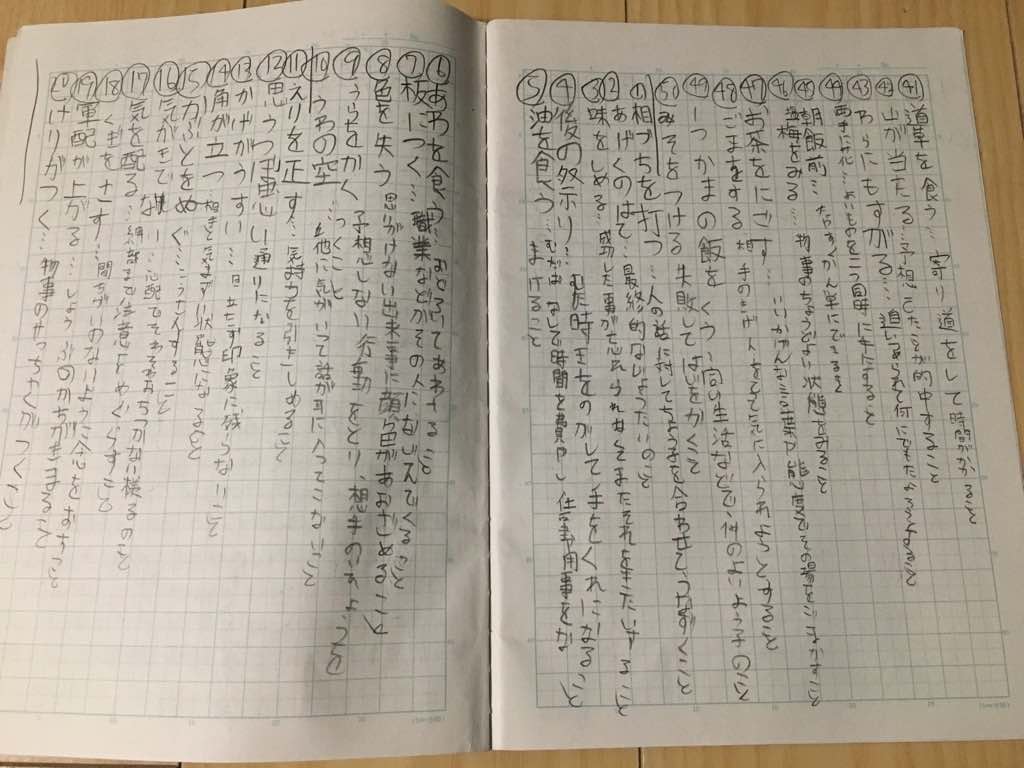 ㊶道草を食う…寄り道をして時間がかかること
㊷山が当たる…予想してたことが的中すること
㊸わらにもすがる…追いつめられて何にでもたよること
㊹両手に花…よいものを二つ同時に手にすること
㊺朝飯前…たやすくかん単にできること
㊻塩梅をみる…物事のちょうどよい状態をみること
㊼お茶をにごす…いいかげんな言葉や態度でその場をごまかすこと
㊽ごまをする 相手のきげんをとって気に入られようとすること
㊾一つかまの飯をくう 同じ生活などで、仲のよいようすのこと
㊿みそをつける 失敗してはじをかくこと
①相づちを打つ…人の話に対して調子を合わせてうなずくこと
②あげくのはて…最終的なけったいのこと
③味をしめる…成功した事が忘れられなくてまたそれをきたいすること
④後の祭り…むだ 時きをのがして手おくれになること
⑤油を食う…むだなはなしで時間を費やし仕事用事をなまけること
⑥あわを食う…おどろいてあわてること
⑦板につく…職業などがその人になじんでくること
⑧色を失う 思いがけない出来事に顔が青ざめること
⑨うらをかく 予想しない行動をとり、相手の
つくこと
⑩うわの空…他に気がいって話が耳に入ってこないこと
⑪えりを正す…気持ちを引きしめること
⑫思うつぼ 思い通りになること
⑬かげがうすい…目立たず印象に残らないこと
⑭角が立つ 相手と気まずい状態になること
⑮かぶとをぬぐ…こうさんすること
⑯気が気でない…心配でそわそわおちつかない様子のこと
⑰気を配る…細部まで注意をめぐらすこと
⑱くぎをさす…間ちがいのないように念をおすこと
⑲軍配が上がる…しょうぶのかちがきまること
けりがつく…物事のけっちゃくがつくこと